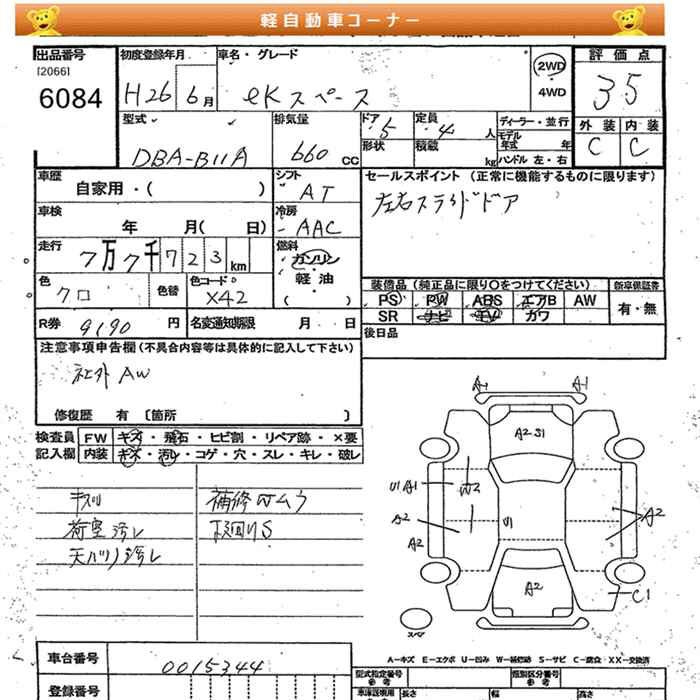 軽自動車コーナー
出品番号 初度登録年月 車名・グレード 2WD 評価点
[2066]
6084 H26 6月 eKスペース 4WD 35
型式 排気量 ドア 5 定員 4人 ディーラー・並行 外装 内装
DBA-B11A 660 CC 形状 積載 kg モデル年式 年 C C
ハンドル 左・右
車歴 自家用・( ) シフト AT セールスポイント (正常に機能するものに限ります)
左右スライドドア
車検 年 月( 日) 冷房 AAC
走行 7万7千723km 燃料 ガソリン
軽油
( )
色 クロ 色替 色コード X42 装備品 (純正品に限り○をつけてください) 新車保証書
PS PW ABS エアB AW 有・無
SR ナビ TV カワ
R券 9190円 名変通知期限 月 日 後日品
注意事項申告欄 (不具合内容等は具体的に記入して下さい)
社外AW
修復歴 有 〔箇所 〕
検査員 FW キズ・飛石・ヒビ割・リペア跡・×要
記入欄 内装 キズ・汚レ・コゲ・穴・スレ・キレ・破レ
キズリ 補修ムラ
荷室汚レ 下廻りS
天バリ汚レ
A1 A1
A2 S1
U1 A1 W2
A2 U1 A2
A2
A2
C1
スペア
A-キズ E-エクボ U-凹み W-補修跡 S-サビ C-腐食 XX-交換済
車台番号 0015344
登録番号
型式指定番号 類別区分番号
参考 参考
長さ 幅 高さ